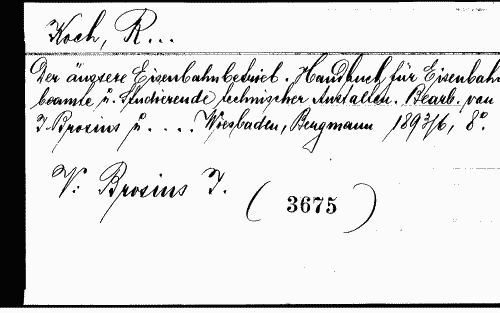 Koch, R...
Der äussere Eisenbahnbetrieb. Handbuch für Eisenbahn
beamte u. Studierende technischer Anstalten. Bearb. von
I. Brosius u. .... Wiesbaden, Bergmann 1893/6, 8°.
V: Brosius I. (3675)